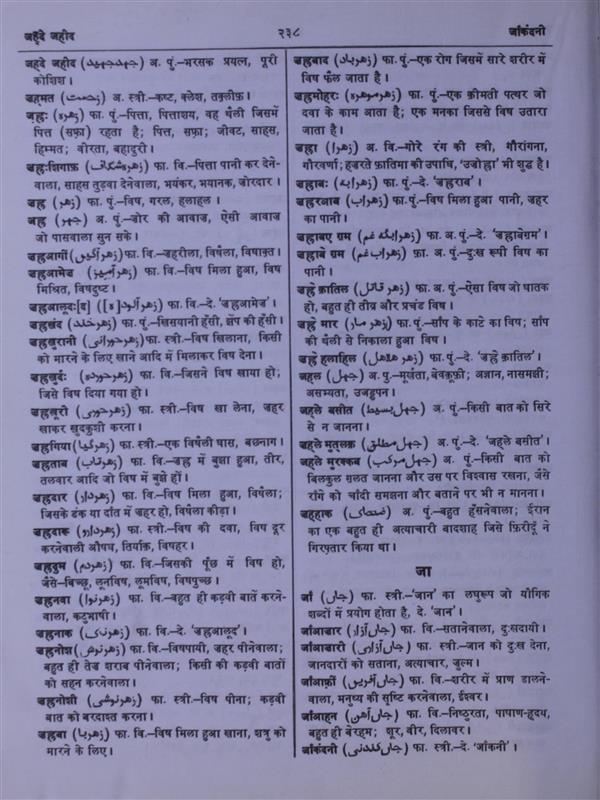 जहदे जहीद
२३८
जांकंदनी
जहदे जहीद (جہد جہید) अ. पुं.–भरसक प्रयत्न, पूरी
कोशिश।
जहमत (زحمت) अ. स्त्री.–कष्ट, क्लेश, तक्लीफ़।
जहः (زہرہ) फा. पुं.–पित्ता, पित्ताशय, वह थैली जिसमें
पित्त (सफ़ा) रहता है; पित्त, सफ़ा; जीवट, साहस,
हिम्मत; वीरता, बहादुरी।
जहःशिगाफ़ (زہرہ شگاف) फा. वि.–पित्ता पानी कर देने-
वाला, साहस तुड़वा देनेवाला, भयंकर, भयानक, जोरदार।
जह्र (زہر) फा. पुं.–विष, गरल, हलाहल।
जह्र (جہر) अ. पुं.–ज़ोर की आवाज, ऐसी आवाज
जो पासवाला सुन सके।
जह्रआगीं (زہر آگیں) फा. वि.–जहरीला, विषैला, विषाक्त।
जह्रआमेज (زہر آمیز) फा. वि.–विष मिला हुआ, विष
मिश्रित, विषदुष्ट।
जह्रआलूदः[द] (زہر آلود[ہ]) फा. वि.–दे. 'जह्रआमेज'।
जह्रखंद (زہر خند) फा. पुं.–खिसयानी हँसी, झेंप की हँसी।
जह्रखुरानी (زہر خورانی) फा. स्त्री.–विष खिलाना, किसी
को मारने के लिए खाने आदि में मिलाकर विष देना।
जह्रखुर्दः (زہر خوردہ) फा. वि.–जिसने विष खाया हो;
जिसे विष दिया गया हो।
जह्रखूरी (زہر خوری) फा. स्त्री.–विष खा लेना, जहर
खाकर खुदकुशी करना।
जह्रगिया (زہر گیا) फा. स्त्री.–एक विषैली घास, बछनाग।
जह्रताब (زہر تاب) फा. वि.–जह्र में बुझा हुआ, तीर,
तलवार आदि जो विष में बुझे हों।
जह्रदार (زہر دار) फा. वि.–विष मिला हुआ, विषैला;
जिसके डंक या दाँत में जहर हो, विषैला कीड़ा।
जह्रदारू (زہر دارو) फा. स्त्री.–विष की दवा, विष दूर
करनेवाली औषध, तिर्याक़, विषहर।
जह्रदुम (زہر دم) फा. वि.–जिसकी पूँछ में विष हो,
जैसे–बिच्छू, लूनविष, लूमविष, विषपुच्छ।
जह्रनवा (زہر نوا) फा. वि.–बहुत ही कड़वी बातें करने-
वाला, कटुभाषी।
जह्रनाक (زہر ناک) फा. वि.–दे. 'जह्रआलूद'।
जह्रनोश (زہر نوش) फा. वि.–विषपायी, जहर पीनेवाला;
बहुत ही तेज शराब पीनेवाला; किसी की कड़वी बातों
को सहन करनेवाला।
जह्रनोशी (زہر نوشی) फा. स्त्री.–विष पीना; कड़वी
बात को बरदाश्त करना।
जह्रबा (زہر با) फा. वि.–विष मिला हुआ खाना, शत्रु को
मारने के लिए।
जह्रबाद (زہر باد) फा. पुं.–एक रोग जिसमें सारे शरीर में
विष फैल जाता है।
जह्रमोहरः (زہر موہرہ) फा. पुं.–एक क़ीमती पत्थर जो
दवा के काम आता है; एक मनका जिससे विष उतारा
जाता है।
जह्रा (زہرا) अ. वि.–गोरे रंग की स्त्री, गौरांगना,
गौरवर्णा; हज़रते फ़ातिमा की उपाधि, 'उज़ोह्रा' भी शुद्ध है।
जह्राबः (زہرابہ) फा. पुं.–दे. 'जह्राब'।
जहरआब (زہراب) फा. पुं.–विष मिला हुआ पानी, जहर
का पानी।
जह्राबए ग़म (زہرابۂ غم) फा. अ. पुं.–दे. 'जह्राबेग़म'।
जह्राबे ग़म (زہراب غم) फ़ा. अ. पुं.–दुःख रूपी विष का
पानी।
जह्रे क़ातिल (زہر قاتل) फा. अ. पुं.–ऐसा विष जो घातक
हो, बहुत ही तीव्र और प्रचंड विष।
जह्रे मार (زہر مار) फा. पुं.–साँप के काटे का विष; साँप
की थैली से निकाला हुआ विष।
जह्रे हलाहिल (زہر ہلاہل) फा. पुं.–दे. 'जह्रे क़ातिल'।
जहल (جہل) अ. पुं.–मूर्खता, बेवक़ूफ़ी; अज्ञान, नासमझी;
असभ्यता, उजड्डपन।
जहले बसीत (جہل بسیط) अ. पुं.–किसी बात को सिरे
से न जानना।
जहले मुतलक़ (جہل مطلق) अ. पुं.–दे. 'जहले बसीत'।
जहले मुरक्कब (جہل مرکب) अ. पुं.–किसी बात को
बिलकुल ग़लत जानना और उस पर विश्वास रखना, जैसे
राँगे को चाँदी समझना और बताने पर भी न मानना।
जहहाक (ضحاک) अ. पुं.–बहुत हँसनेवाला; ईरान
का एक बहुत ही अत्याचारी बादशाह जिसे फ़िरीदूँ ने
गिरफ़्तार किया था।
जा
जाँ (جاں) फा. स्त्री.–'जान' का लघुरूप जो यौगिक
शब्दों में प्रयोग होता है, दे. 'जान'।
जाँआजार (جاں آزار) फा. वि.–सतानेवाला, दुःखदायी।
जाँआजारी (جاں آزاری) फा. स्त्री.–जान को दुःख देना,
जानदारों को सताना, अत्याचार, ज़ुल्म।
जाँआफ्रीं (جاں آفریں) फा. वि.–शरीर में प्राण डालने-
वाला, मनुष्य की सृष्टि करनेवाला, ईश्वर।
जाँआहन (جاں آہن) फा. वि.–निष्ठुरता, पाषाण-हृदय,
बहुत ही बेरहम; शूर, वीर, दिलावर।
जाँकंदनी (جاں کندنی) फा. स्त्री.–दे. 'जाँकनी'।